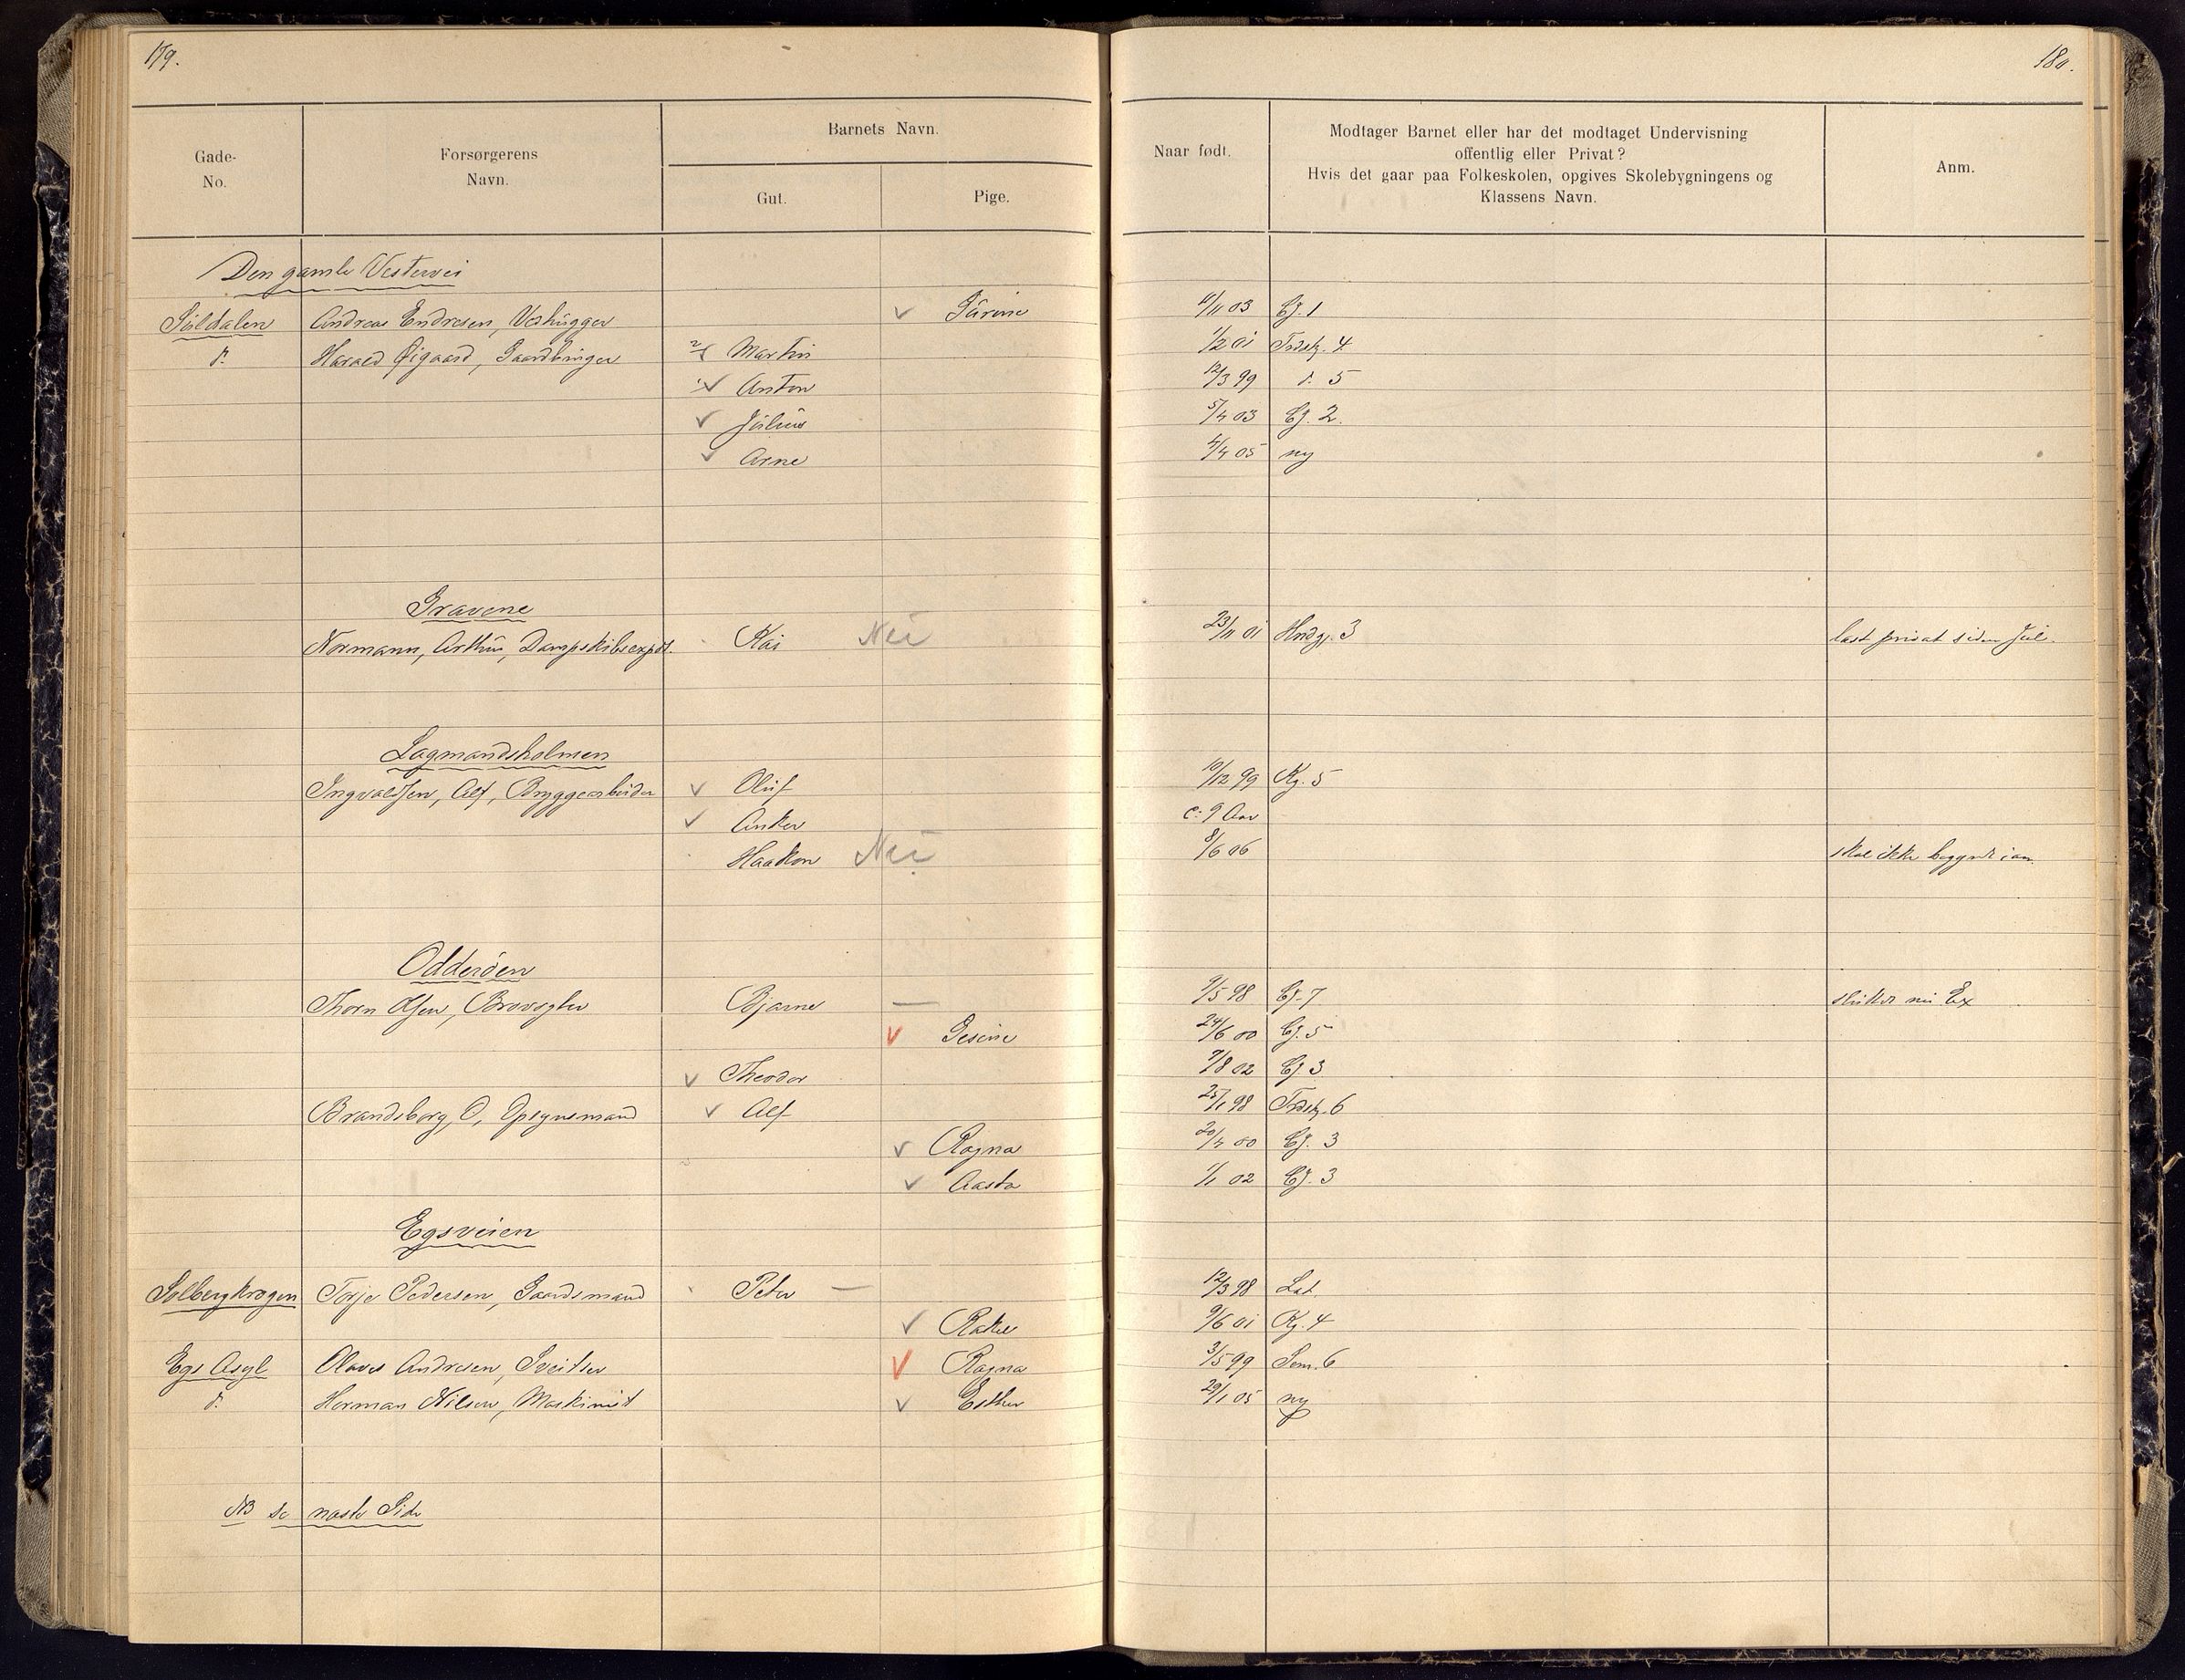 179.
180.
Gade-
No.
Forsørgerens
Navn.
Barnets Navn.
Gut.
Pige.
Naar født.
Modtager Barnet eller har det modtaget Undervisning
offentlig eller Privat?
Hvis det gaar paa Folkeskolen, opgives Skolebygningens og
Klassens Navn.
Anm.
Den gamle Vestervei
Suldalen Andreas Endresen, Vedhugger 11/11 03 Cg. 1
d. Harald Øigaard, Gaardbruger Martin 1/2 01 Trdsk. 4
Anton 12/3 99 d. 5
Julius 5/4 03 Cg. 2.
Arne 4/4 05 ny
Gravene
Normann, Arthur, Dampskibsexpdt. Kai Nei 23/11 01 3 læst privat siden Jul.
Lagmandsholmen
Ingvaldsen, Alf, Bryggearbeider Oluf 10/12 99 Kg. 5
Anker c: 9 Aar
Haakon Nei 8/6 06 skal ikke begynde i aar.
Odderøen
Thorn Olsen, Brovogter Bjarne — 9/5 98 Cg. 7 slutter nu Ex
Gesine 24/6 00 Cg. 5
Theodor 7/8 02 Cg. 3
Brandsborg, O, Opsynsmand Alf 25/1 98 Trdsk. 6
Ragna 20/4 00 Cg. 3
Aasta 1/1 02 Cg. 3
Egsveien
Solbergkrogen Terje Pedersen, Gaardsmand Peter — 12/3 98 Lat.
Rakel 9/6 01 Kg. 4
Egs Asyl Olaves Andresen, Sveitser Ragna 3/5 99 Sem. 6
d. Herman Nilsen, Maskinist Esther 29/1 05 ny
NB se næste Side